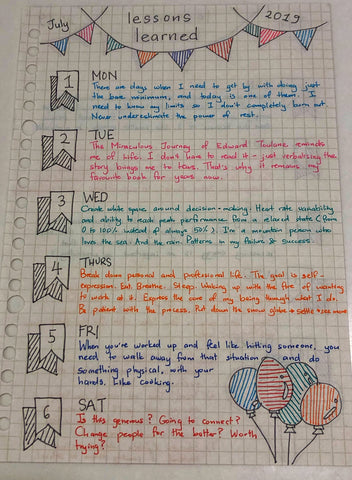 July
lessons
learned
2019
1
MON
There are days when I need to get by with doing just
the bare minimum, and today is one of them. I
need to know my limits so I don't completely burn out.
Never underestimate the power of rest.
2
TUE
The Miraculous Journey of Edward Toulane reminds
me of life. I don't have to read it - just verbalising the
story brings me to tears. That's why it remains my
favourite book for years now.
3
WED
Create white space around decision-making. Heart rate variability
and ability to reach peak performance from a relaxed state (from
0 to 100% instead of always 50%). I'm a mountain person who
loves the sea. And the rain. Patterns in my failure & success.
4
THURS
Break down personal and professional life. The goal is self-
expression. Eat. Breathe. Sleep. Waking up with the fire of wanting
to work at it. Express the core of my being through what I do.
Be patient with the process. Put down the snow globe → settle → see more
5
FRI
When you're worked up and feel like hitting someone, you
need to walk away from that situation and do
something physical, with your
hands. Like cooking.
6
SAT
Is this generous? Going to connect?
Change people for the better? Worth
trying?